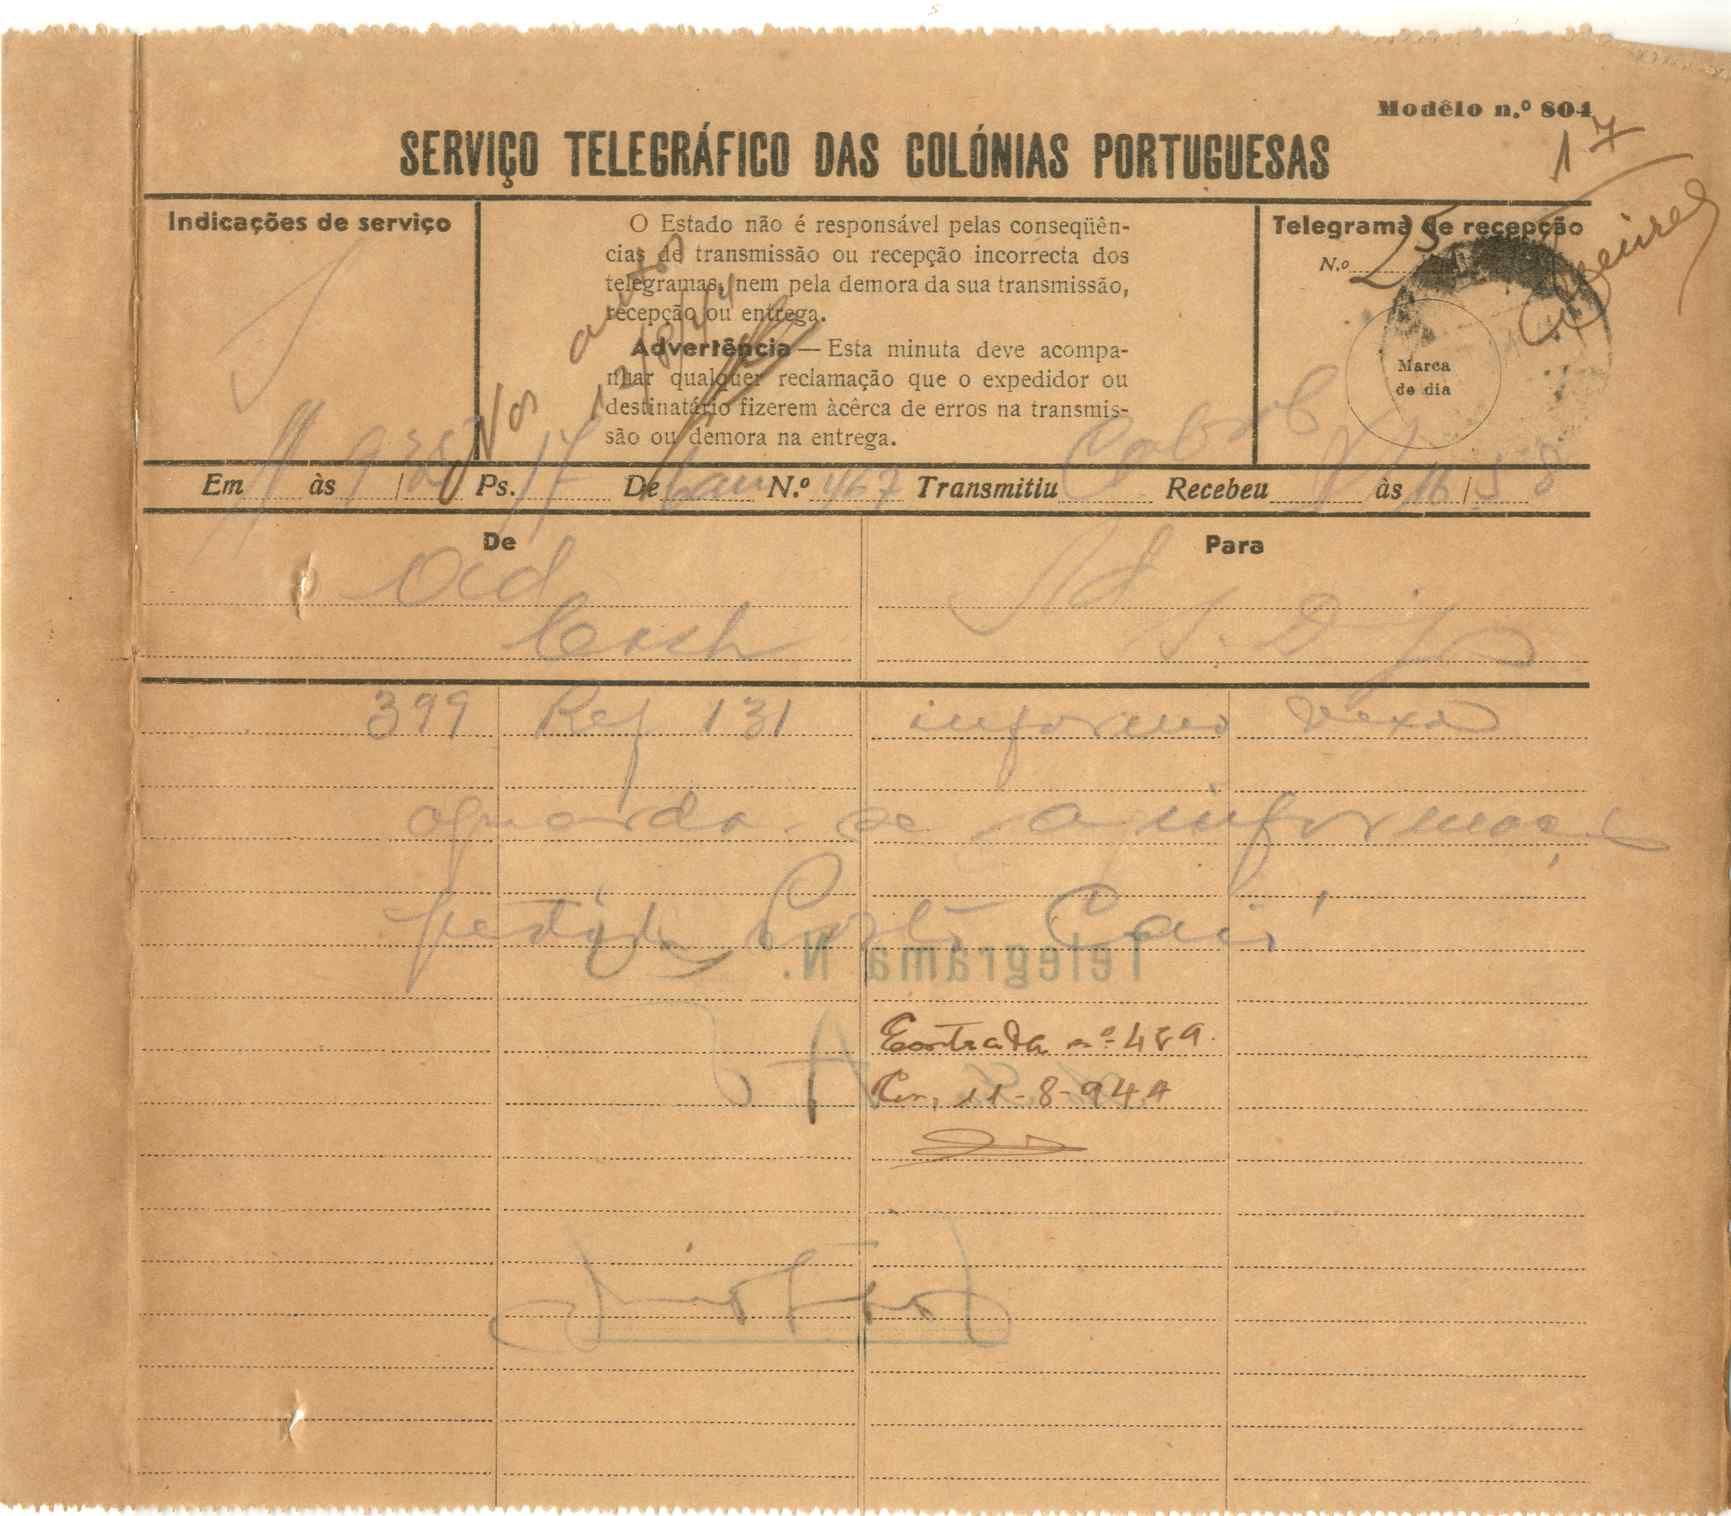 Modêlo n.º 804
17
SERVIÇO TELEGRÁFICO DAS COLÓNIAS PORTUGUESAS
Indicações de serviço
O Estado não é responsável pelas conseqüên-
cias de transmissão ou recepção incorrecta dos
telegramas, nem pela demora da sua transmissão,
recepção ou entrega.
Advertência — Esta minuta deve acompa-
nhar qualquer reclamação que o expedidor ou
destinatário fizerem àcêrca de erros na transmis-
são ou demora na entrega.
Telegrama de recepção
N.º 25
Marca
de dia
Aos autos
12/8/44
Em 11 às 9 / 35 Ps. 17 De N.º 467 Transmitiu Recebeu às 16 / 58
De
Para
399 Ref 131 informo vexa
aguarda se informação
pedida Posto Caió
Telegrama N.º
Entrada nº 489.
11-8-944